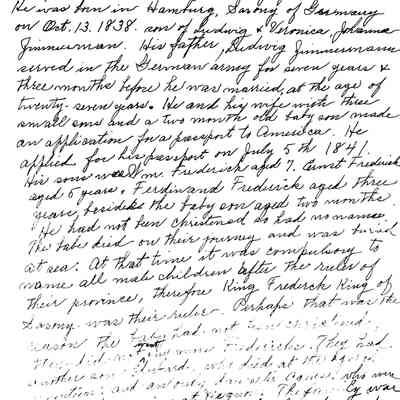 He was born in Hamburg, Saxony of Germany
on Oct. 13. 1838. son of Ludwig & Veronica Johanna
Zimmerman. His father, Ludwig Zimmermann
served in the German army for seven years &
three months before he was married, at the age of
twenty-seven years. He and his wife with three
small sons and a two month old baby son made
an application for a passport to America. He
applied for his passport on July 5 th 1841.
His sons Frederick aged 7. Ernst Frederick
aged 5 years. Ferdinand Frederick aged three
years, besides the baby son aged two months
He had not been christened so had no name.
The babe died on their journey and was buried
at sea. At that time it was compulsory to
name all male children after the ruler of
their province, therefore King Frederick King of
Saxony was their ruler. Perhaps that was the
reason the baby had not been christened.
they did not many more Fredericks. They had
another son who died at the age of
and an only daughter Agnes, who
at The family was